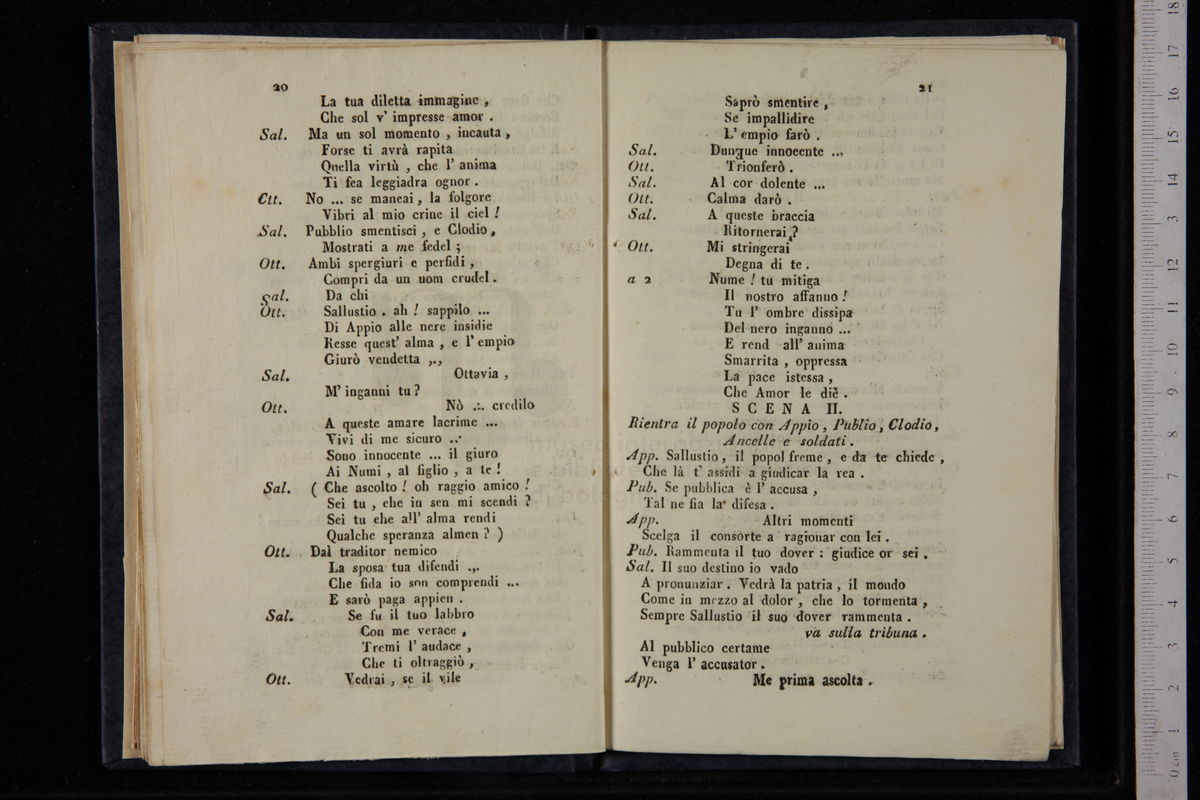 20
La tua diletta immagine ,
Che sol v' impresse amor .
Sal. Ma un sol momento , incauta ,
Forse ti avrà rapita
Quella virtù , che l' anima
Ti fea leggiadra ognor .
Ctt. No ... se maneai , la folgore
Vibri al mio crine il ciel !
Sal. Pubblio smentisci , e Clodio ,
Mostrati a me fedel ;
Ott. Ambi spergiuri e perfidi ,
Compri da un uom crudel .
Sal. Da chi
Ott. Sallustio . ah ! sappilo ...
Di Appio alle nere insidie
Resse quest' alma , e l' empio
Giurò vendetta ,.,
Sal. Ottavia ,
M' inganni tu ?
Ott. Nò .:. credilo
A queste amare lacrime ...
Vivi di me sicuro ...
Sono innocente ... il giuro
Ai Numi , al figlio , a te !
Sal. ( Che ascolto ! oh raggio amico !
Sei tu , che in sen mi scendi ?
Sei tu che all' alma rendi
Qualche speranza almen ? )
Ott. Dal traditor nemico
La sposa tua difendi .,.
Che fida io son comprendi ...
E sarò paga appien .
Sal. Se fu il tuo labbro
Con me verace ,
Tremi l' audace ,
Che ti oltraggiò ,
Ott. Vedrai , se il vile
21
Saprò smentire ,
Se impallidire
L' empio farò .
Sal. Dunque innoeente ...
Ott. Trionferò .
Sal. Al cor dolente ...
Ott. Calma darò .
Sal. A queste braccia
Ritornerai ?
Ott. Mi stringerai
Degna di te .
a 2 Nume ! tu mitiga
Il nostro affanno !
Tu l' ombre dissipa
Del nero inganno ...
E rend all' anima
Smarrita , oppressa
La pace istessa ,
Che Amor le diè .
SCENA II.
Rientra il popolo con Appio , Publio , Clodio ,
Ancelle e soldati .
App. Sallustio , il popol freme , e da te chiede ,
Che là t' assidi a giudicar la rea .
Pub. Se pubblica è l' accusa ,
Tal ne fia la difesa .
App. Altri momenti
Scelga il consorte a ragionar con lei .
Pub. Rammenta il tuo dover : giudice or sei .
Sal. Il suo destino io vado
A pronunziar . Vedrà la patria , il mondo
Come in mezzo al dolor , che lo tormenta ,
Sempre Sallustio il suo dover rammenta .
va sulla tribuna .
Al pubblico certame
Venga l' accusator .
App. Me prima ascolta .
0 cm 1 2 3 4 5 6 7 8 9 10 11 12 13 14 15 16 17 18